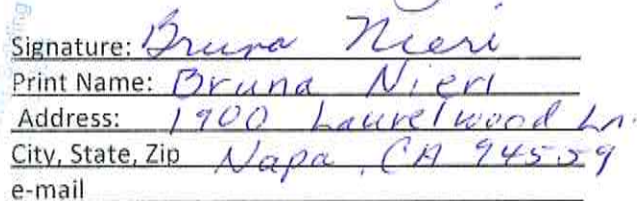 Signature: Bruna Nieri
Print Name: Bruna Nieri
Address: 1900 Laurelwood Ln.
City, State, Zip Napa, CA 94559
e-mail